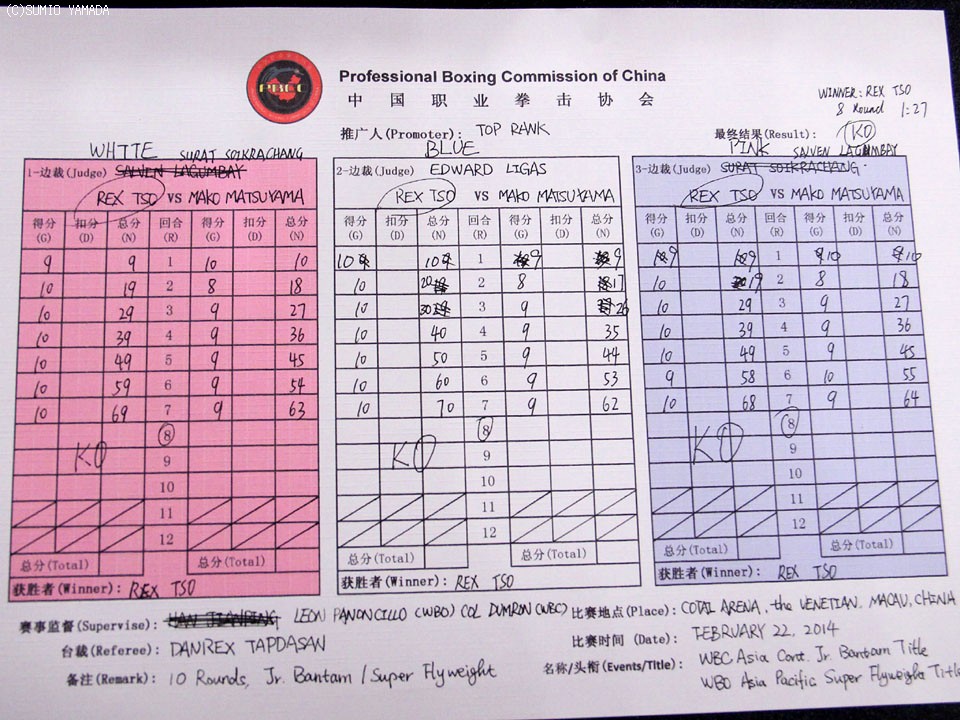 (C)SUMIO YAMADA
PBCC
Professional Boxing Commission of China
中国职业拳击协会
WINNER: REX TSO
8 Round 1:27
推广人(Promoter): TOP RANK
最终结果(Result): KO
WHITE
SURAT SOIKRACHANG
1-边裁(Judge) SALVEN LAGUMBAY
REX TSO VS MAKO MATSUYAMA
得分 扣分 总分 回合 得分 扣分 总分
(G) (D) (N) (R) (G) (D) (N)
9 9 1 10 10
10 19 2 8 18
10 29 3 9 27
10 39 4 9 36
10 49 5 9 45
10 59 6 9 54
10 69 7 9 63
8
KO 9
10
11
12
总分(Total) 总分(Total)
获胜者(Winner): REX TSO
BLUE
2-边裁(Judge) EDWARD LIGAS
REX TSO VS MAKO MATSUYAMA
得分 扣分 总分 回合 得分 扣分 总分
(G) (D) (N) (R) (G) (D) (N)
10 10 1 9 9
10 20 2 8 17
10 30 3 9 26
10 40 4 9 35
10 50 5 9 44
10 60 6 9 53
10 70 7 9 62
8
KO 9
10
11
12
总分(Total) 总分(Total)
获胜者(Winner): REX TSO
PINK
SALVEN LAGUMBAY
3-边裁(Judge) SURAT SOIKRACHANG
REX TSO VS MAKO MATSUYAMA
得分 扣分 总分 回合 得分 扣分 总分
(G) (D) (N) (R) (G) (D) (N)
9 9 1 10 10
10 19 2 8 18
10 29 3 9 27
10 39 4 9 36
10 49 5 9 45
9 58 6 10 55
10 68 7 9 64
8
KO 9
10
11
12
总分(Total) 总分(Total)
获胜者(Winner): REX TSO
赛事监督(Supervise): LEON PANONCILLO (WBO) COL DUMRON (WBC)
比赛地点(Place): COTAI ARENA, the VENETIAN. MACAU, CHINA
台裁(Referee): DANREX TAPDASAN
比赛时间(Date): FEBRUARY 22, 2014
备注(Remark): 10 Rounds, Jr. Bantam / Super Flyweight
名称/头衔(Events/Title): WBC Asia Cont. Jr. Bantam Title
WBO Asia Pacific Super Flyweight Title